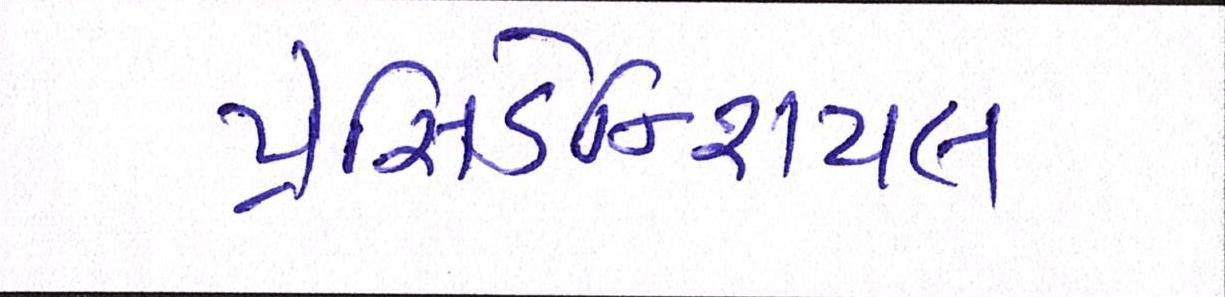 પ્રેસિડેન્શિયલ